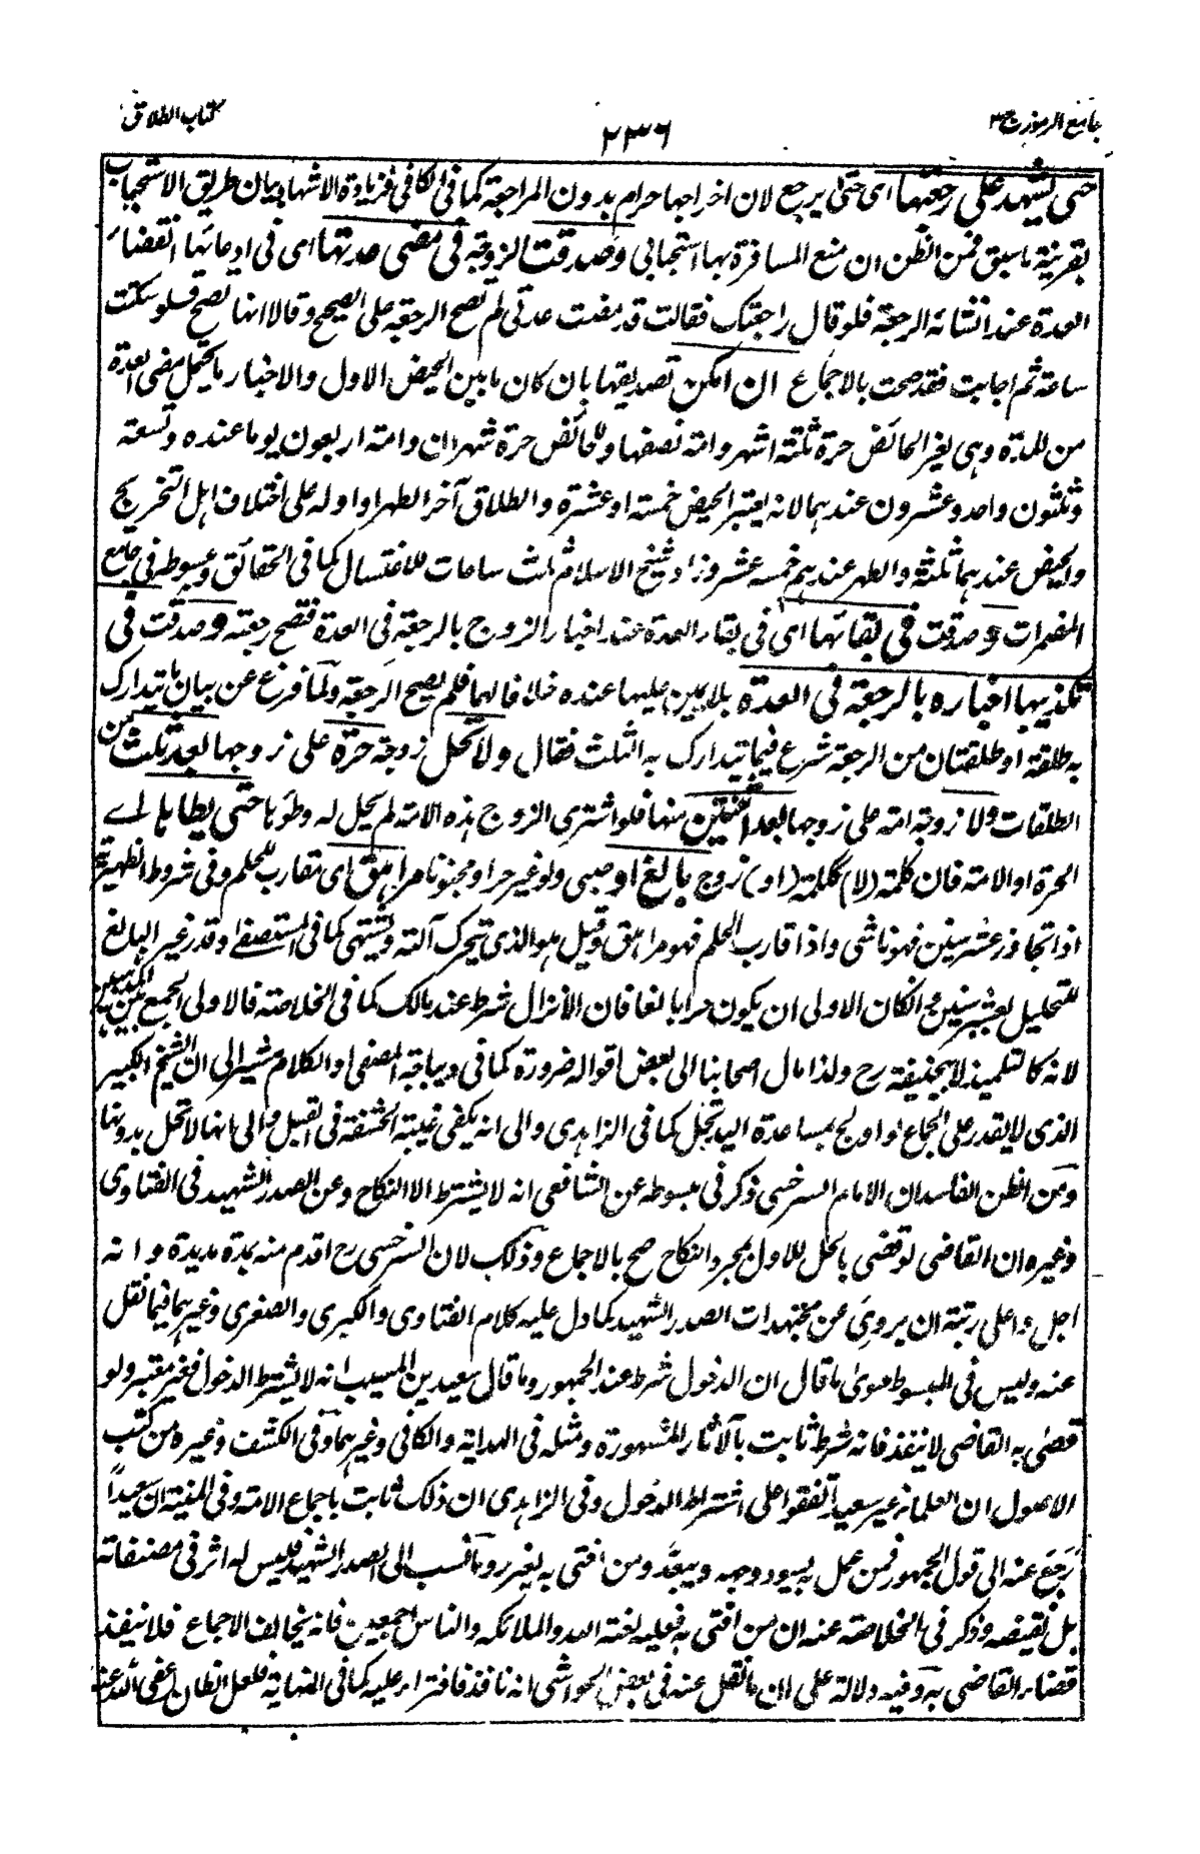 جامع الرموز ج ٣
٢٣٦
كتاب الطلاق
حتى يشهد على رجعتها اى حتى يرجع لان اخراجها حرام بدون المراجعة كما فى الكافى فزيادة الاشهاد بيان طريق الاستحباب
بقرينة ما سبق فمن الظن ان منع المسافرة بها استحبابى وصدقت الزوجة فى مضى عدتها اى فى ادعائها انقضاء
العدة عند انشائه الرجعة فلو قال راجعتك فقالت قد مضت عدتى لم تصح الرجعة على الصحيح وقالا انها تصح فلو سكتت
ساعة ثم اجابت فقد صحت بالاجماع ان امكن تصديقها بان كان ما بين الحيض الاول والاخبار ما يحتمل مضى العدة
من المدة وهى لغير الحائض حرة ثلثة اشهر وامة نصفها وللحائض حرة شهران وامة اربعون يوما عنده وتسعة
وثلثون واحد وعشرون عندهما لانه يعتبر الحيض خمسة او عشرة والطلاق آخر الطهر او اوله على اختلاف اهل التخريج
والحيض عندهما ثلثة والطهر عندهم خمسة عشر وزاد شيخ الاسلام ثلث ساعات للاغتسال كما فى الحقائق ومبسوطه فى جامع
المضمرات وصدقت فى بقائها اى فى بقاء العدة عند اخبار الزوج بالرجعة فى العدة فتصح رجعته وصدقت فى
تكذيبها اخباره بالرجعة فى العدة بلا يمين عليها عنده خلافا لهما فلم يصح الرجعة ولما فرغ عن بيان ما يتدارك
به طلقة او طلقتان من الرجعة شرع فيما يتدارك به الثلث فقال ولا تحل زوجة حرة على زوجها بعد ثلث من
الطلقات ولا زوجة امة على زوجها بعد ثنتين منها فلو اشترى الزوج هذه الامة لم يحل له وطؤها حتى يطاها اے
الحرة او الامة فان كلمة (لا) ككلمة (او) زوج بالغ او صبى ولو غير حر او مجنونا مراهق اى متقارب للحلم وفى شروط الظهيرية
اذا تجاوز عشر سنين فهو ناشى واذا قارب الحلم فهو مراهق وقيل هو الذى تتحرك آلته ويشتهى كما فى المستصفے وقدر غير البالغ
للتحليل بعشر سنين لكان الاولى ان يكون حرا بالغا فان الانزال شرط عند مالك كما فى الخلاصة فالاولى الجمع بين المذهبين
لانه كالتلميذ لابى حنيفة رح ولذا مال اصحابنا الى بعض اقواله ضرورة كما فى ديباجة المصفى والكلام مشير الى ان الشيخ الكبير
الذى لا يقدر على الجماع لو اولج بمساعدة اليد تحل كما فى الزاهدى والى انه يكفى غيبة الحشفة فى القبل والى انها لا تحل بدونها
ومن الظن الفاسد ان الامام السرخسى ذكر فى مبسوطه عن الشافعى انه لا يشترط الا النكاح وعن الصدر الشهيد فى الفتاوى
وغيره ان القاضى لو قضى بالحل للاول بمجرد النكاح صح بالاجماع وذلك لان السرخسى رح اقدم منه بمدة مديدة وانه
اجل واعلى رتبة ان يروى عن مجتهدات الصدر الشهيد كما دل عليه كلام الفتاوى والكبرى والصغرى وغيرهما فيما نقل
عنه وليس فى المبسوط سوى ما قال ان الدخول شرط عند الجمهور وما قال سعيد بن المسيب انه لا يشترط الدخول فغير معتبر ولو
قضى به القاضى لا ينفذ فانه شرط ثابت بالآثار المشهورة ومثله فى الهداية والكافى وغيرهما وفى الكشف وغيره من كتب
الاصول ان العلماء غير سعيد اتفقوا على اشتراط الدخول وفى الزاهدى ان ذلك ثابت باجماع الامة وفى المنية ان سعيداً
رجع عنه الى قول الجمهور فمن عمل به يسود وجهه ويبعد ومن افتى به يغرر وما نسب الى الصدر الشهيد فليس له اثر فى مصنفاته
بل نقيضه وذكر فى الخلاصة عنه ان من افتى به فعليه لعنة الله والملائكة والناس اجمعين فانه يخالف الاجماع فلا ينفذ
قضاء القاضى به وفيه دلالة على ان ما نقل عنه فى بعض الحواشى انه نافذ فافتراء عليه كما فى النهاية فلعل الظان عفى الله عنه